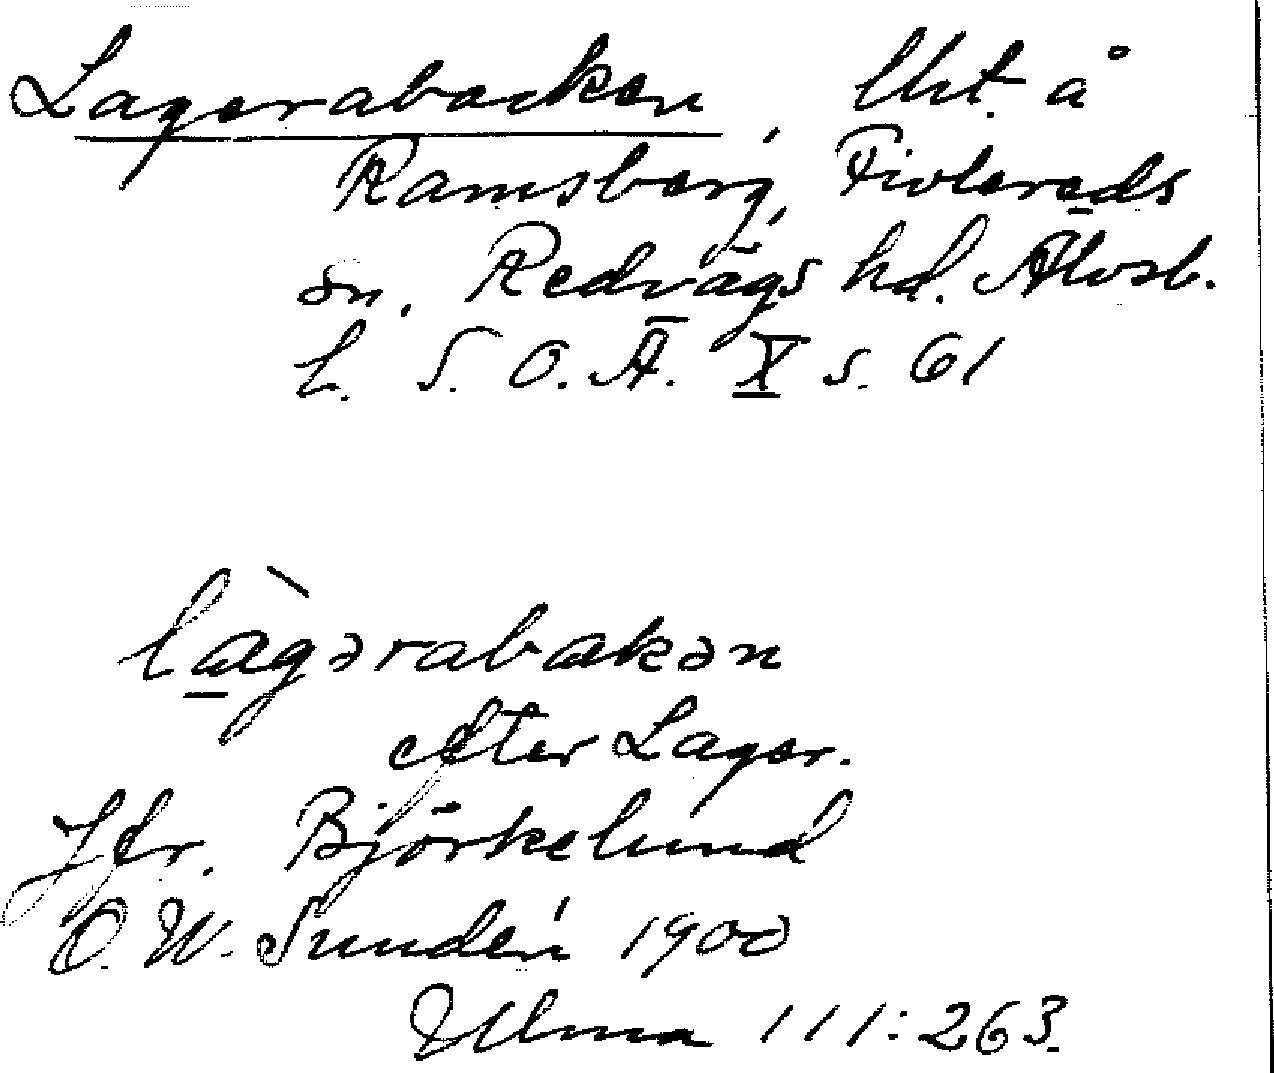 Lagerabacken, Uht. å
Ramsberg, Fivlereds
sn. Redvägs hd. Älvsb.
l. S. O. Ä. X s. 61
làgərabakən
efter Lager.
Jfr. Björkelund
O. W. Sundén 1900
Ulma 111:263.